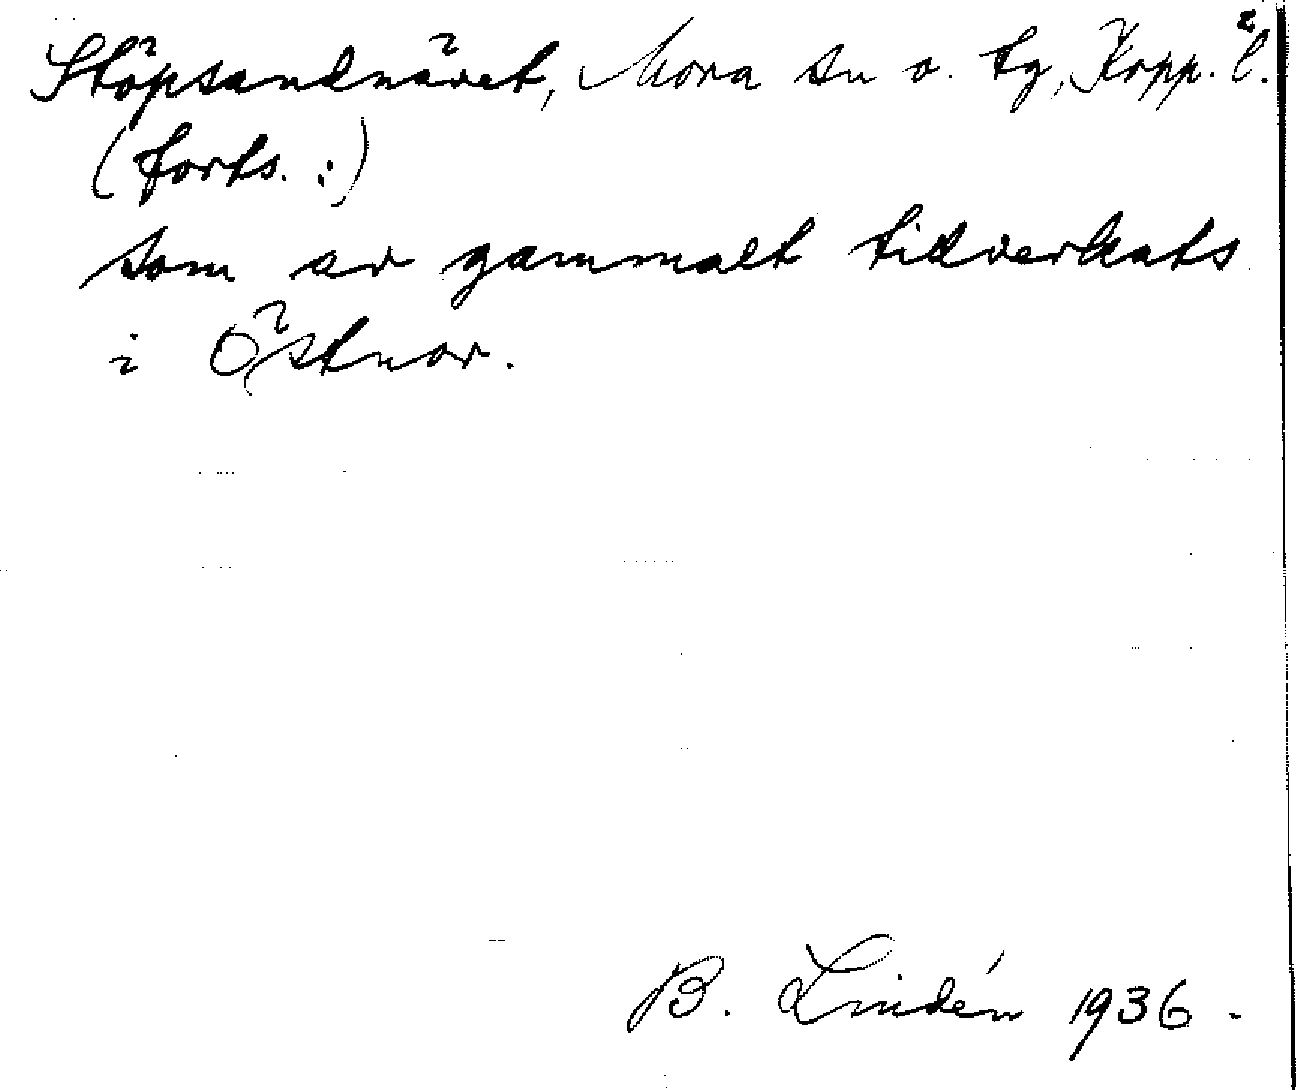 Stöpsandnävet, Mora sn o. tg, Kopp. l.
(forts. :)
som av gammalt tillverkats
i Östnor.
B. Lindén 1936.